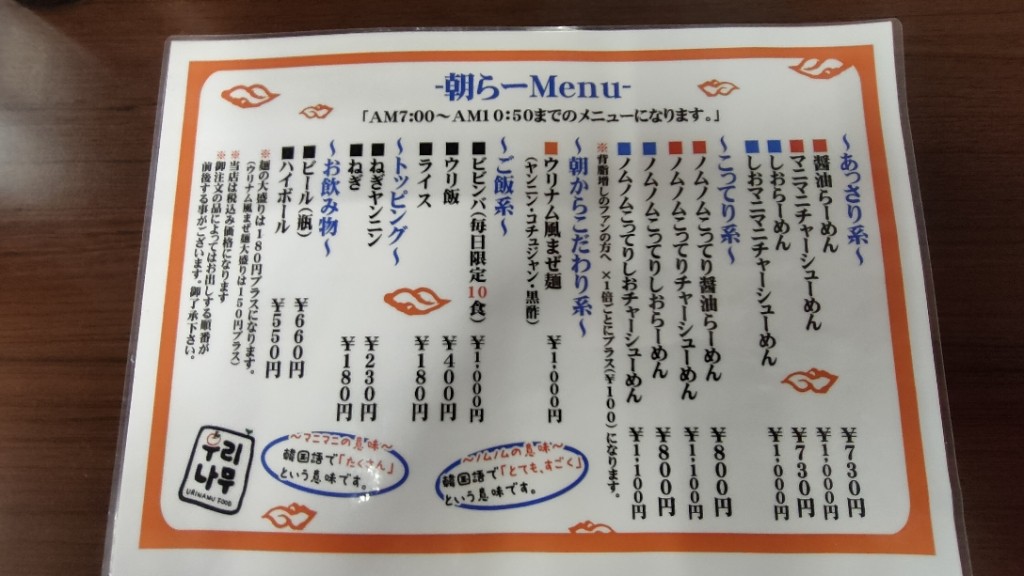 -朝らーMenu-
「AM7:00～AM10:50までのメニューになります。」
～あっさり系～
■醤油らーめん ￥730円
■マニマニチャーシューめん ￥1.000円
■しおらーめん ￥730円
■しおマニマニチャーシューめん ￥1.000円
～こってり系～
■ノムノムこってり醤油らーめん ￥800円
■ノムノムこってりチャーシューめん ￥1.100円
■ノムノムこってりしおらーめん ￥800円
■ノムノムこってりしおチャーシューめん ￥1.100円
※背脂増しのファンの方へ ×1倍ごとにプラス(￥100)になります。
～朝からこだわり系～
■ウリナム風まぜ麺 ￥1.000円
(ヤンニン・コチュジャン・黒酢)
～ご飯系～
■ビビンバ(毎日限定10食) ￥1.000円
■ウリ飯 ￥400円
■ライス ￥180円
～トッピング～
■ねぎヤンニン ￥230円
■ねぎ ￥180円
～お飲み物～
■ビール(瓶) ￥660円
■ハイボール ￥550円
※麺の大盛りは180円プラスになります。
(ウリナム風まぜ麺大盛りは150円プラス)
※当店は税込み価格になります
※御注文の品によってはお出しする順番が
前後する事がございます。御了承下さい。
～ノムノムの意味～
韓国語で「とても、すごく」
という意味です。
～マニマニの意味～
韓国語で「たくさん」
という意味です。
우리
나무
URINAMU FOOD